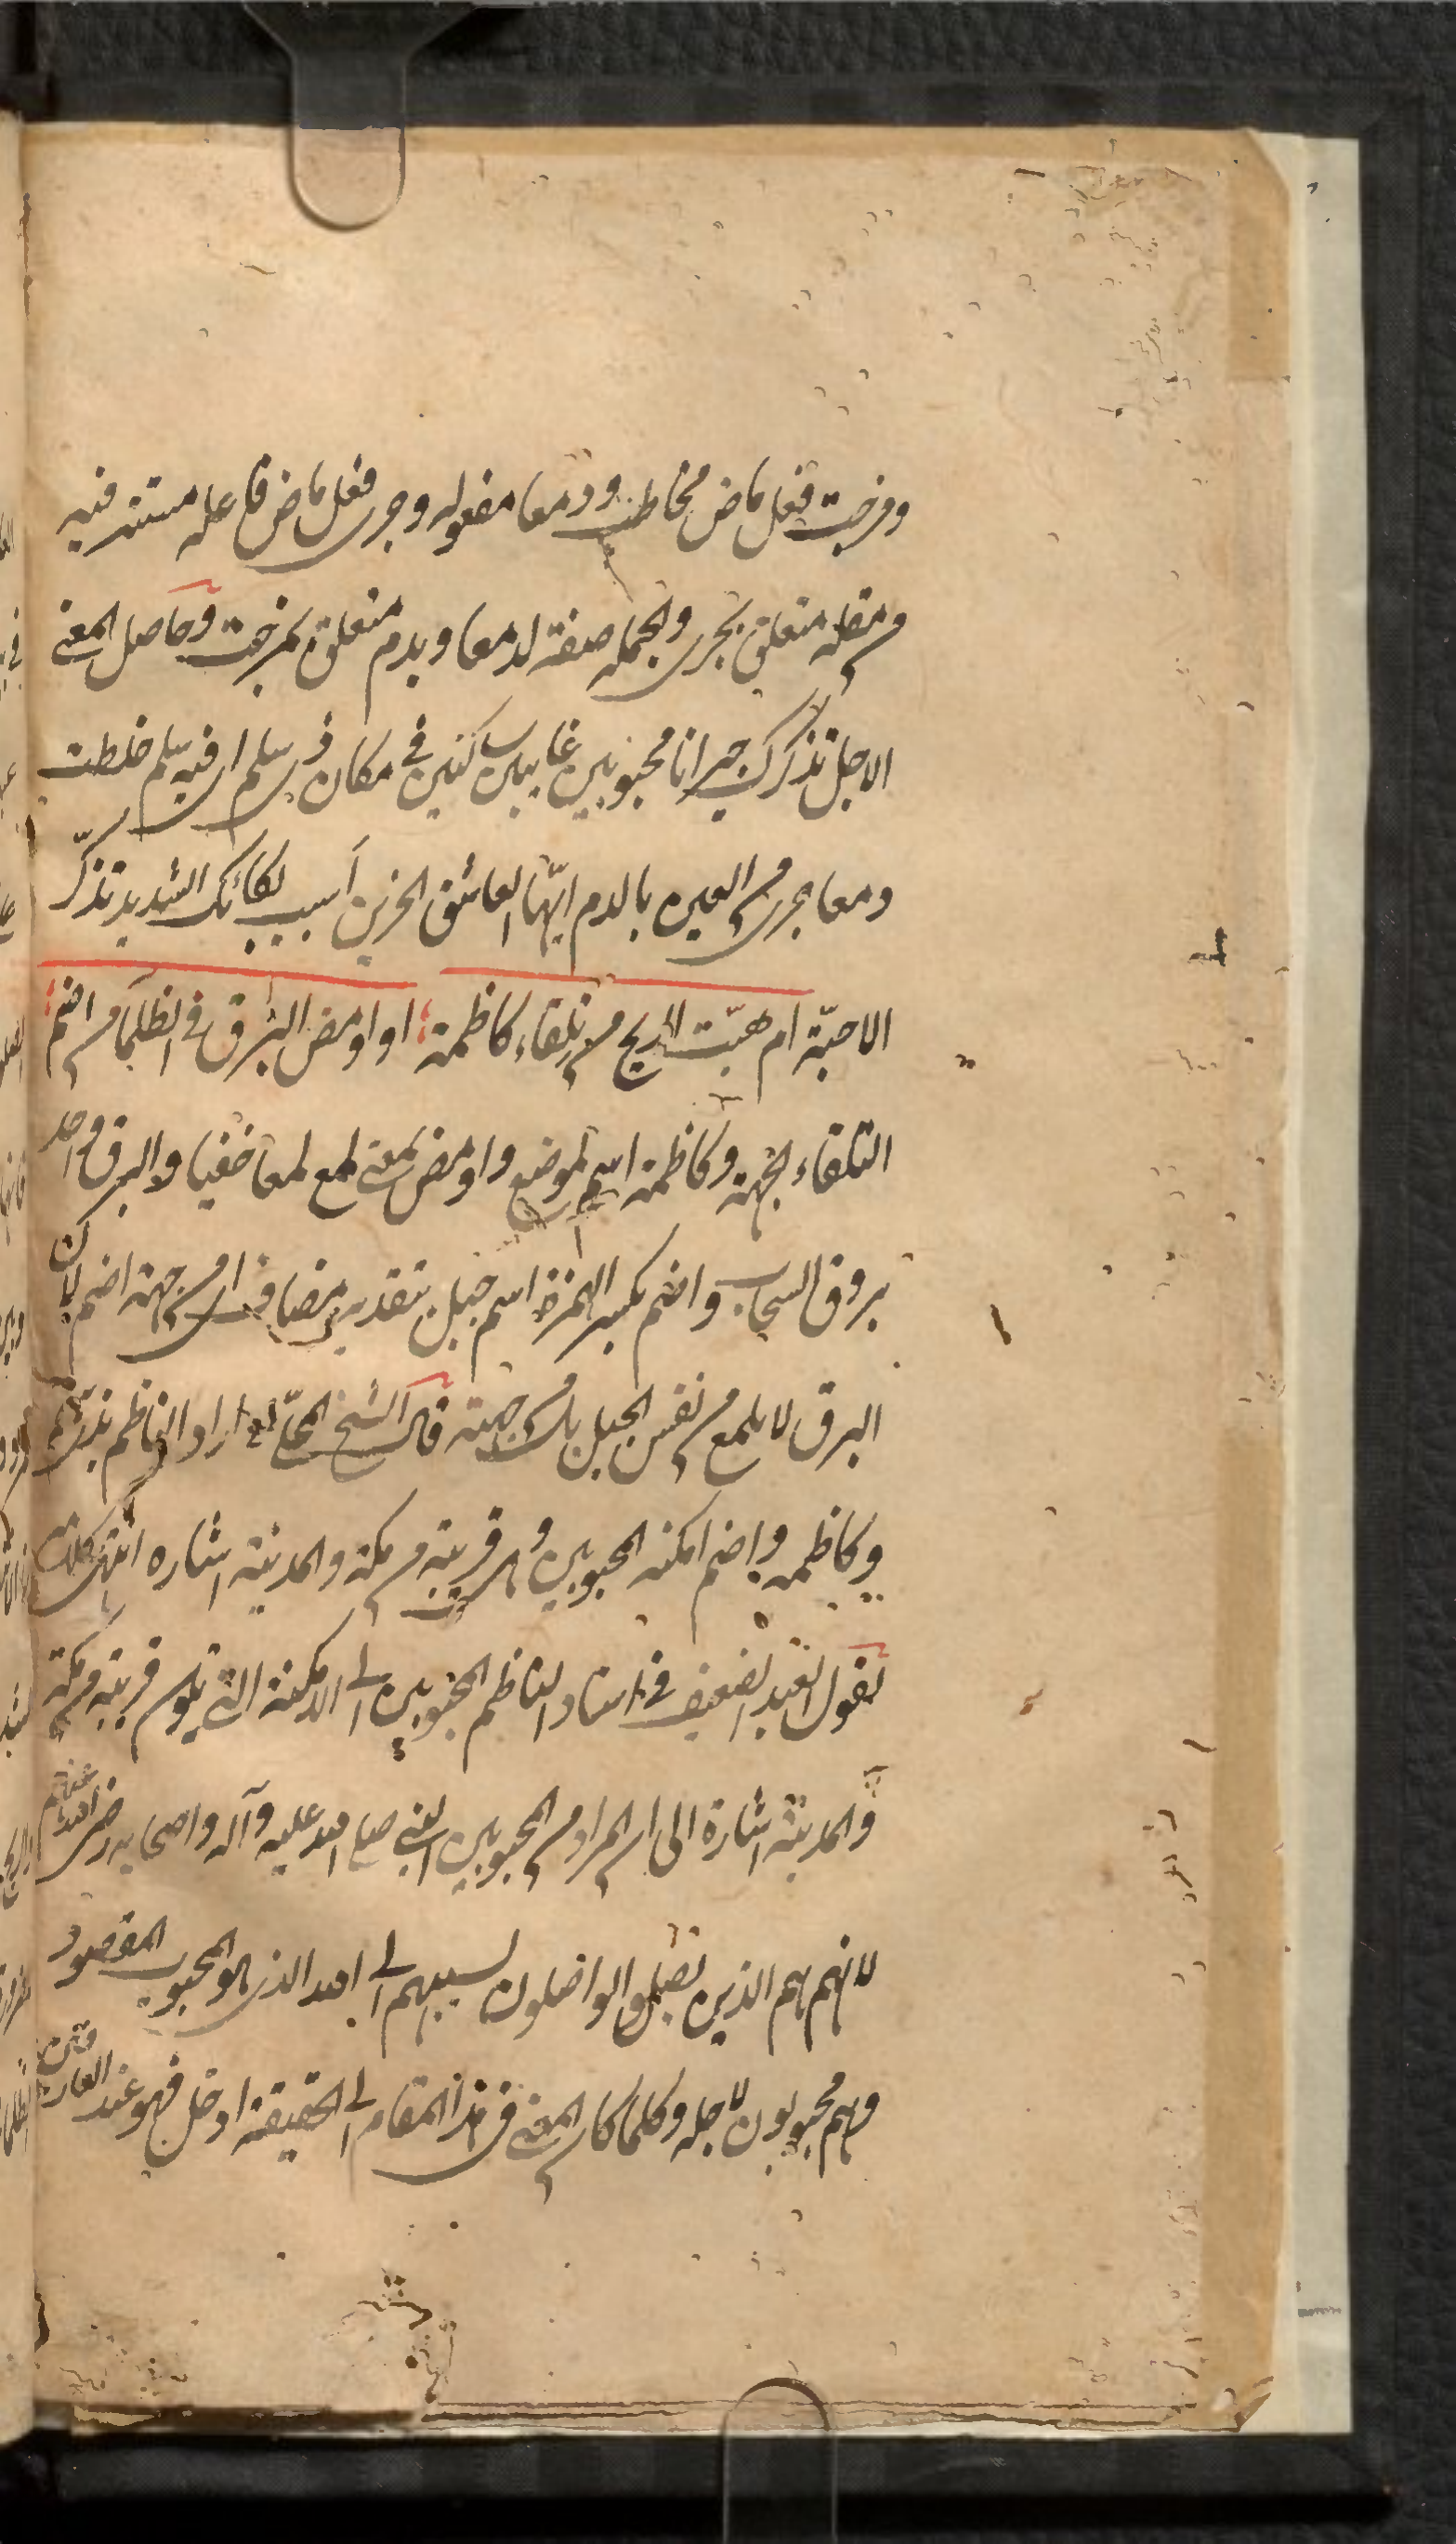 ومزجت فعل ماض مخاطب ودمعا مفعوله وجرى فعل ماض فاعله مستتر فيه
من مقلة متعلق بجرى والجملة صفة لدمعا وبدم متعلق بمزجت وحاصل المعنى
الاجل تذكرك جيرانا محبوبين غايبين ساكنين في مكان ذى سلم اى فيه سلم خلطت
دمعا جرى من العين بالدم ايّها العاشق الحزين أسبب بكائك الشديد تذكّر
الاحبّة ام هبّت الريح من تلقاء كاظمة او اومض البرق في الظلماء من اضم
التلقاء الجهة وكاظمة اسم لموضع واومض بمعنى لمع لمعا خفيا والبرق واحد
بروق السحاب واضم بكسر الهمزة اسم جبل بتقدير مضاف اى من جهة اضم لان
البرق لا يلمع من نفس الجبل بل من جهته قال الشيخ المحلّى اراد الناظم بذى سلم
وكاظمة واضم امكنة المحبوبين وهى قريبة من مكة والمدينة اشاره انتهى كلامه
يقول العبد الضعيف في اسناد الناظم المحبوبين الى الامكنة التى تكون قريبة من مكة
والمدينة اشارة الى ان المراد من المحبوبين النبى صلى الله عليه وآله واصحابه رضى الله عنهم
لانهم هم الذين يصل الواصلون بسببهم الى الله الذى هو المحبوب المقصود
وهم محبوبون لاجله وكلما كان المعنى في هذا المقام الى الحقيقة ادخل فهو عند العارفين